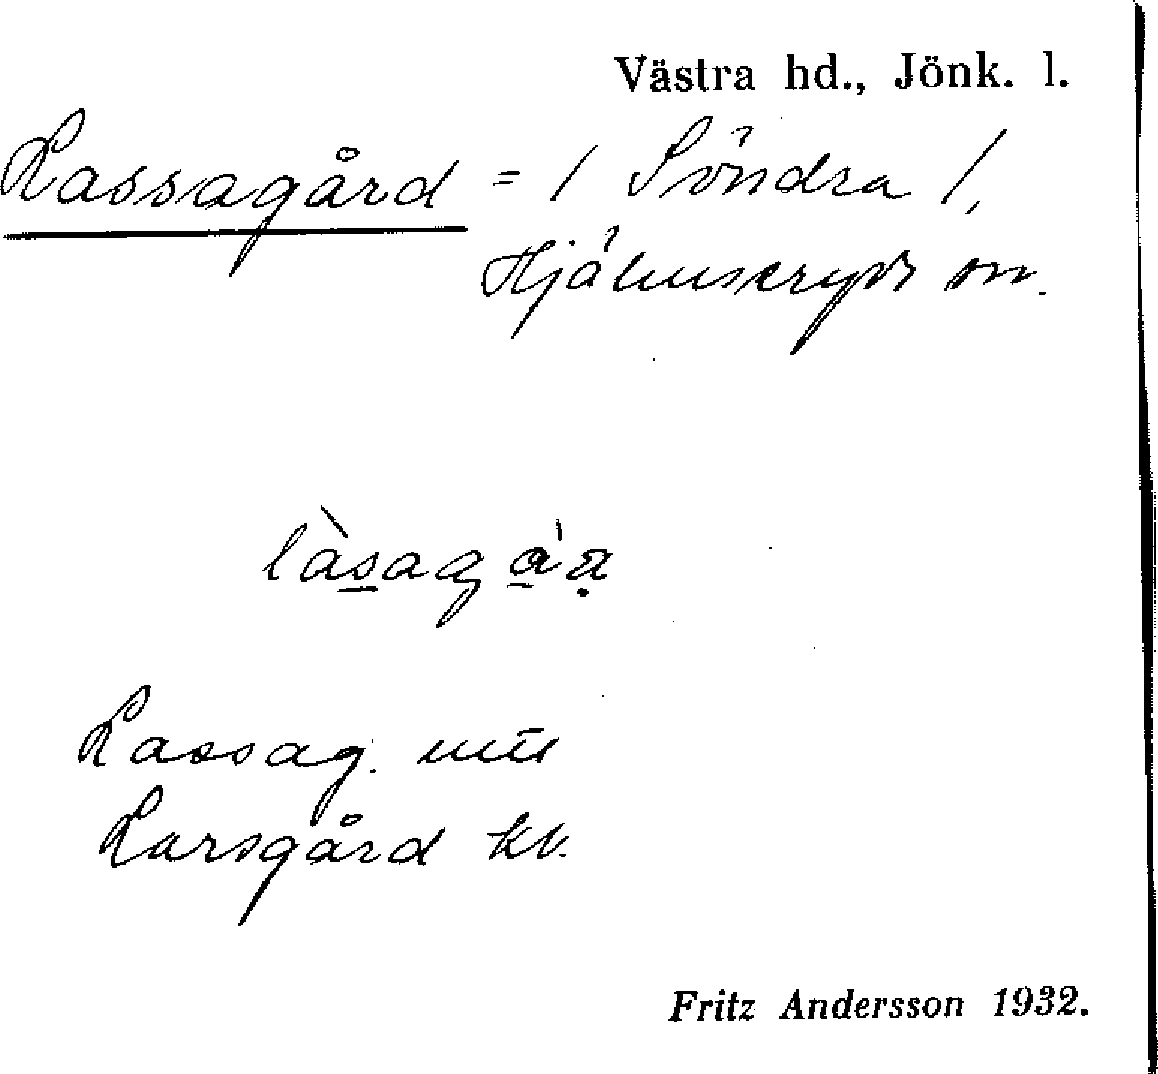 Västra hd., Jönk. l.
Lassagård = / Söndra /,
Hjälmseryds sn.
làsaga̱'ạ
Lassag. mtl
Larsgård kv.
Fritz Andersson 1932.